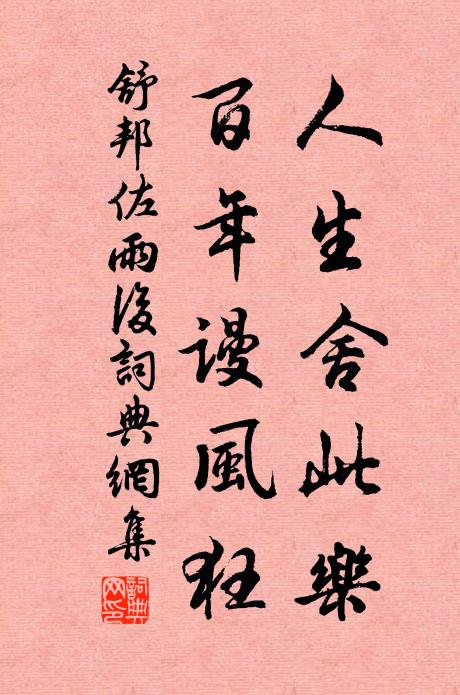 人生舍此樂
百年謾風狂
舒邦佐雨後詞典網集
詞典網印